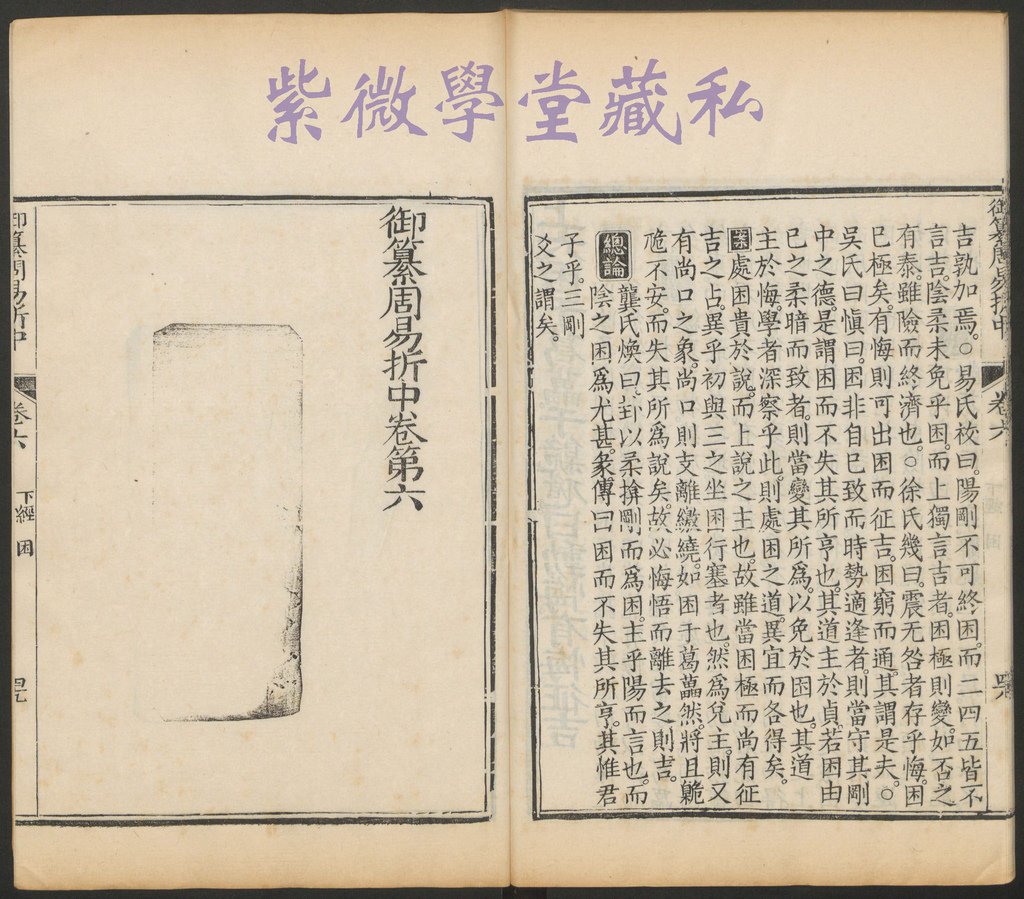 紫微學堂藏私
御纂周易折中 卷六
吉孰加焉。○易氞祓曰。陽剛不可終困。而二四五皆不
言吉。陰柔未免乎困。而上獨言吉者。困極則變。如否之
有泰。雖險而終濟也。○徐氏幾曰。震无咎者存乎悔。困
已極矣。有悔則可出困而征吉。困窮而通。其謂是夫。○
吳氏曰愼曰。困非自已致而時勢適逢者。則當守其剛
中之德。是謂困而不失其所亨也。其道主於貞。若困由
已之柔暗而致者。則當變其所爲。以免於困也。其道
主於悔。學者深察乎此。則處困之道。異宜而各得矣。
案處困貴於說。而上說之主也。故雖當困極而尚有征
吉之占。異乎初與三之坐困行塞者也。然爲兌主。則又
有尚口之象。尚口則支離繳繞。如困于葛藟然。將且臲
卼不安。而失其所爲說矣。故必悔悟而離去之則吉。
總論 龔氏煥曰。卦以柔揜剛而爲困。主乎陽而言也。而
陰之困爲尤甚。彖傳曰困而不失其所亨。其惟君
子乎。三剛
爻之謂矣。
御纂周易折中卷第六
御纂周易折中 卷六 下經 困